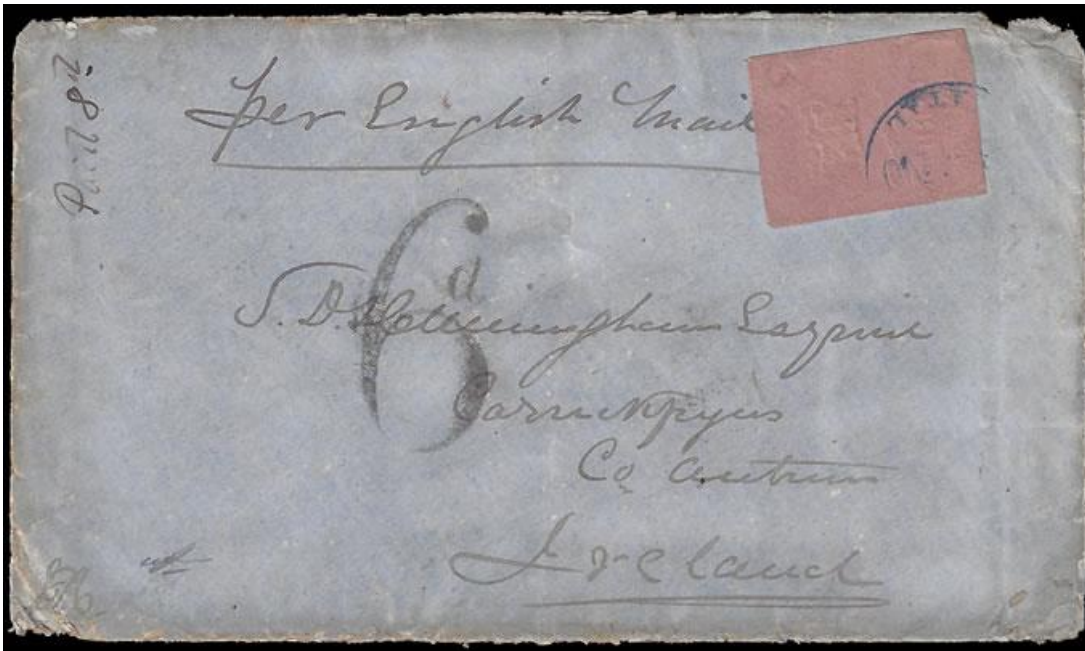 Paid 8d
per English Mail
6d
S. D. Esquire
Carrickfergus
Co Antrim
Ireland